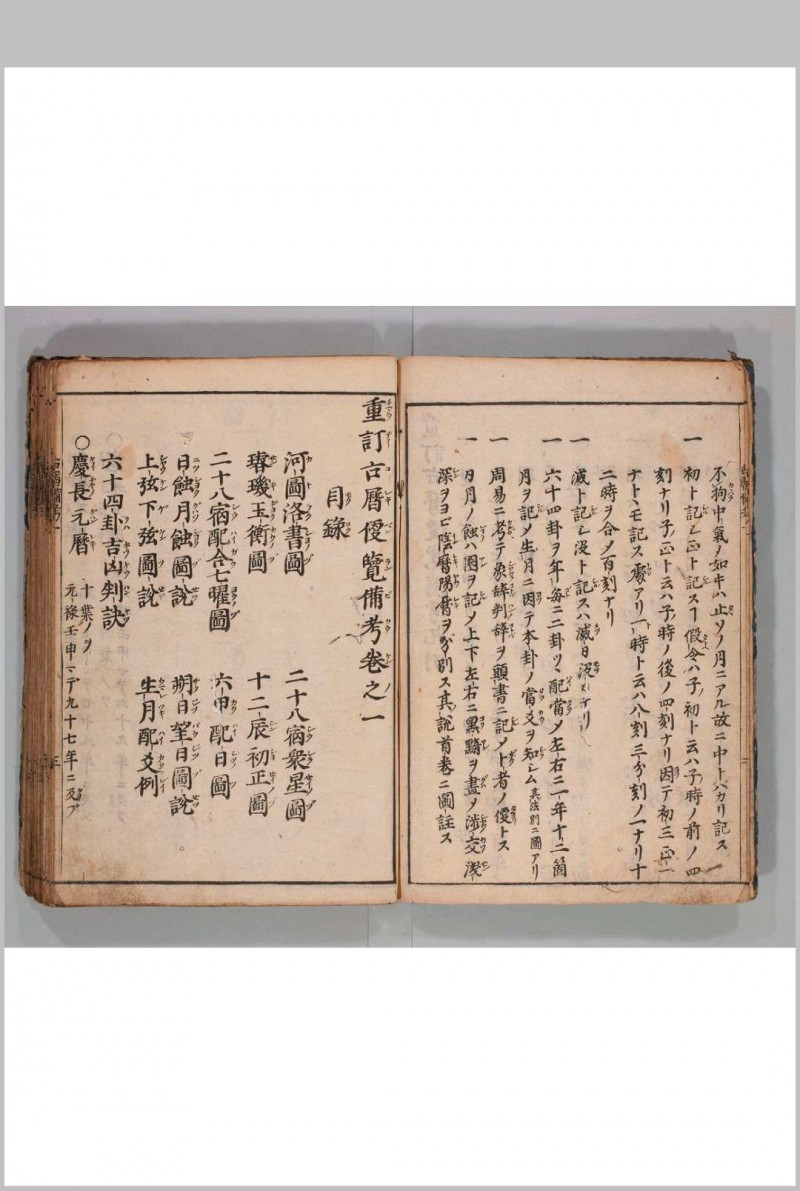 不拘中氣ノ如キハ止ソノ月ニアル故ニ中トハカリ記ス
一 初ト記シ正ト記スヿ假令ハ子ノ初ト云ハ子ノ時ノ前ノ四
刻ナリ子ノ正ト云ハ子ノ時ノ後ノ四刻ナリ因テ初三正一
ナトヽモ記ス處アリ一時ト云ハ八刻三分一刻ノ一ナリ十
二時ヲ合メ百刻ナリ
一 滅ト記シ没ト記スハ滅日没日ナリ
一 六十四卦ヲ年毎ニ二卦ツヽ配當メ左右ニ一年十二箇
月ヲ記メ生月ニ因テ本卦ノ當爻ヲ知シム 其法別ニ圖アリ
一 周易ニ考テ象辞判辞ヲ頭書ニ記メト者ノ便トス
一 日月ノ蝕ハ圏ヲ記メ上下左右ニ黒黯ヲ畫メ渉交淺
深ヲヨヒ陰暦陽暦ヲ分別ス其説首卷ニ圖註ス
重訂古暦便覽備考卷之一
目錄
河圖洛書圖 二十八宿衆星圖
璿璣玉衡圖 十二辰初正圖
二十八宿配合七曜圖 六甲配日圖
日蝕月蝕圖說 朔日望日圖說
上弦下弦圖說 生月配爻例
六十四卦吉凶判訣
〇慶長元暦 十葉ノヲ
元禄壬申マデ九十七年ニ及ブ